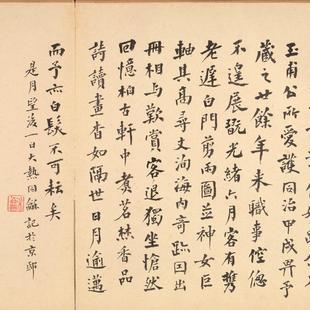 玉甫公所愛護同治甲戌畀予
藏之廿餘年来職事倥偬
不遑展翫光緒六月客有携
老遲白門剪雨圖並神女巨
軸其高尋丈洵海内奇跡因出
冊相与歎賞客退獨坐愴然
回憶柏古軒中煑茗焚香品
詩讀畫杳如隔世日月逾邁
而予亦白髮不可耘矣
是月望後一日大熱伯龢記於京邸